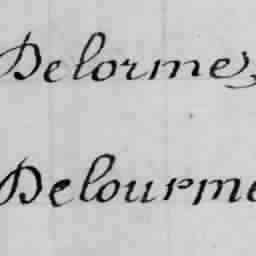 Delorme,
Delourme